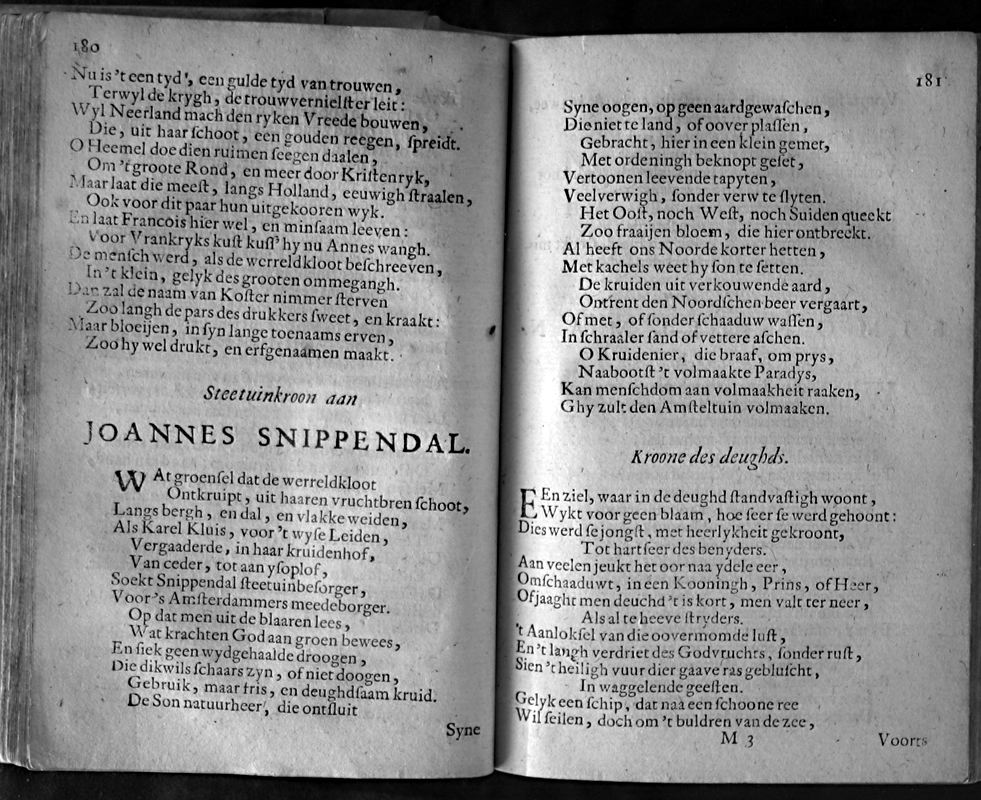 180
Nu is 't een tyd', een gulde tyd van trouwen,
Terwyl de krygh, de trouwvernielster leit:
Wyl Neerland mach den ryken Vreede bouwen,
Die, uit haar ſchoot, een gouden reegen, ſpreidt.
O Heemel doe dien ruimen ſeegen daalen,
Om 't groote Rond, en meer door Kriſtenryk,
Maar laat die meeſt, langs Holland, eeuwigh ſtraalen,
Ook voor dit paar hun uitgekooren wyk.
En laat Francois hier wel, en minſaam leeven:
Voor Vrankryks kuſt kuſſ' hy nu Annes wangh.
De menſch werd, als de werreldkloot beſchreeven,
In 't klein, gelyk des grooten ommegangh.
Dan zal de naam van Koſter nimmer ſterven
Zoo langh de pars des drukkers ſweet, en kraakt:
Maar bloeijen, in ſyn lange toenaams erven,
Zoo hy wel drukt, en erfgenaamen maakt.
Steetuinkroon aan
JOANNES SNIPPENDAL.
WAt groenſel dat de werreldkloot
Ontkruipt, uit haaren vruchtbren ſchoot,
Langs bergh, en dal, en vlakke weiden,
Als Karel Kluis, voor 't wyſe Leiden,
Vergaaderde, in haar kruidenhof,
Van ceder, tot aan yſoplof,
Soekt Snippendal ſteetuinbeſorger,
Voor 's Amſterdammers meedeborger.
Op dat men uit de blaaren lees,
Wat krachten God aan groen bewees,
En ſiek geen wydgehaalde droogen,
Die dikwils ſchaars zyn, of niet doogen,
Gebruik, maar fris, en deughdſaam kruid.
De Son natuurheer', die ontſluit
Syne
181
Syne oogen, op geen aardgewaſchen,
Die niet te land, of oover plaſſen,
Gebracht, hier in een klein gemet,
Met ordeningh beknopt geſet,
Vertoonen leevende tapyten,
Veelverwigh, ſonder verw te ſlyten.
Het Ooſt, noch Weſt, noch Suiden queekt
Zoo fraaijen bloem, die hier ontbreekt.
Al heeft ons Noorde korter hetten,
Met kachels weet hy ſon te ſetten.
De kruiden uit verkouwende aard,
Ontrent den Noordſchen beer vergaart,
Of met, of ſonder ſchaaduw waſſen,
In ſchraaler ſand of vettere aſchen.
O Kruidenier, die braaf, om prys,
Naabootſt 't volmaakte Paradys,
Kan menſchdom aan volmaakheit raaken,
Ghy zult den Amſteltuin volmaaken.
Kroone des deughds.
EEn ziel, waar in de deughd ſtandvaſtigh woont,
Wykt voor geen blaam, hoe ſeer ſe werd gehoont:
Dies werd ſe jongſt, met heerlykheit gekroont,
Tot hartſeer des benyders.
Aan veelen jeukt het oor naa ydele eer,
Omſchaaduwt, in een Kooningh, Prins, of Heer,
Of jaaght men deuchd 't is kort, men valt ter neer,
Als al te heeve ſtryders.
't Aanlokſel van die oovermomde luſt,
En 't langh verdriet des Godvruchts, ſonder ruſt,
Sien 't heiligh vuur dier gaave ras gebluſcht,
In waggelende geeſten.
Gelyk een ſchip, dat naa een ſchoone ree
Wil ſeilen, doch om 't buldren van de zee,
M 3
Voorts